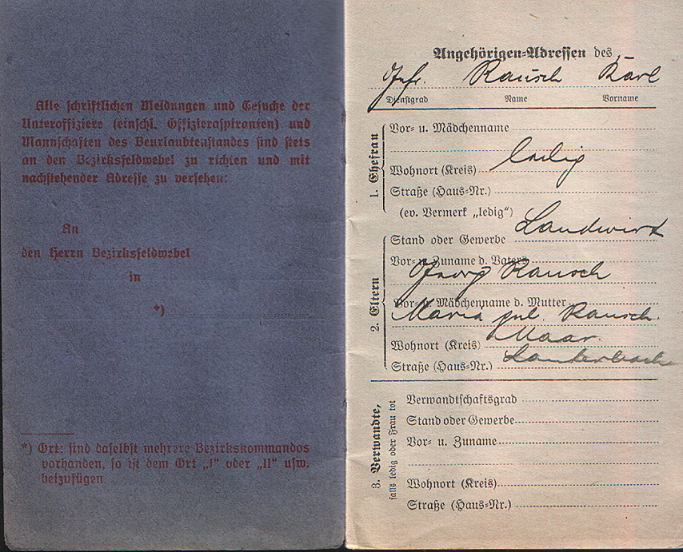 Alle schriftlichen Meldungen und Gesuche der
Unteroffiziere (einschl. Offizieraspiranten) und
Mannschaften des Beurlaubtenstandes sind stets
an den Bezirksfeldwebel zu richten und mit
nachstehender Adresse zu versehen:
An
den Herrn Bezirksfeldwebel
in
*)
*) Ort: sind daselbst mehrere Bezirkskommandos
vorhanden, so ist dem Ort „I" oder „II" usw.
beizufügen
Angehörigen-Adressen des
Rausch Karl
Dienstgrad Name Vorname
1. Ehefrau
Vor- u. Mädchenname
ledig
Wohnort (Kreis)
Straße (Haus-Nr.)
(ev. Vermerk „ledig")
2. Eltern
Landwirt
Stand oder Gewerbe
Vor- u. Zuname d. Vaters
Georg Rausch
Vor- u. Mädchenname d. Mutter
Maria geb. Rausch.
Wohnort (Kreis) Maar.
Straße (Haus-Nr.) Lauterbach
3. Verwandte,
falls ledig oder Frau tot
Verwandtschaftsgrad
Stand oder Gewerbe
Vor- u. Zuname
Wohnort (Kreis)
Straße (Haus-Nr.)